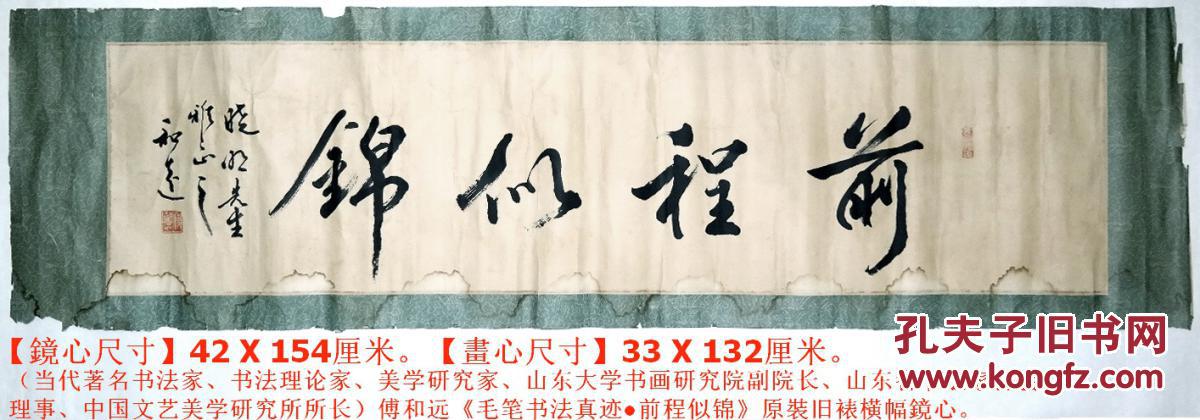 前程似錦
晓明先生
雅正之
和远
【鏡心尺寸】42 X 154厘米。【畫心尺寸】33 X 132厘米。
（当代著名书法家、书法理论家、美学研究家、山东大学书画研究院副院长、山东
理事、中国文艺美学研究所所长）傅和远《毛笔书法真迹●前程似锦》原裝旧裱横幅鏡心。
孔夫子旧书网
www.kongfz.com